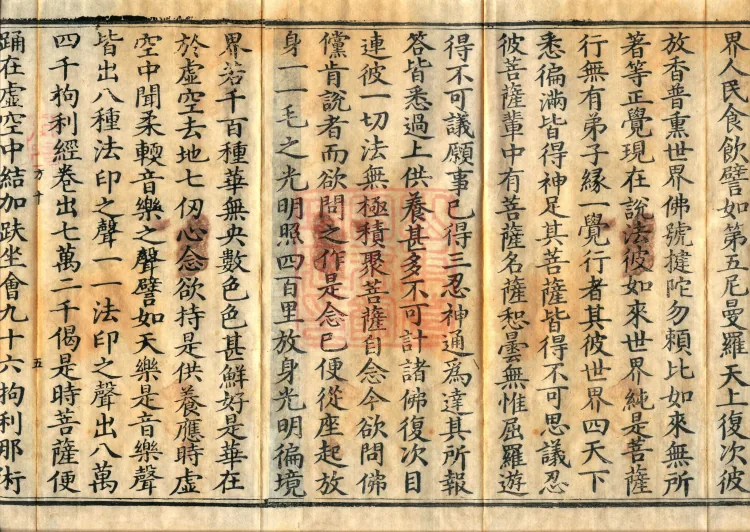 界人民食飲譬如第五尼曼羅天上復次彼
放香普熏世界佛號揵陀勿賴比如來無所
著等正覺現在說法彼如來世界純是菩薩
行無有弟子緣一覺行者其彼世界四天下
悉徧滿皆得神足其菩薩皆得不可思議忍
彼菩薩輩中有菩薩名薩惒曇無惟屈羅遊
得不可議願事已得三忍神通為達其所報
答皆悉過上供養甚多不可計諸佛復次目
連彼一切法無極積聚菩薩自念今欲問佛
儻肯說者而欲問之作是念已便從座起放
身一一毛之光明照四百里放身光明徧境
界若千百種華無央數色色甚鮮好是華在
於虛空去地七仞心念欲持是供養應時虛
空中聞柔輭音樂之聲譬如天樂是音樂聲
皆出八種法印之聲一一法印之聲出八萬
四千拘利經卷出七萬二千偈是時菩薩便
踊在虛空中結加趺坐會九十六拘利那術
万十
五